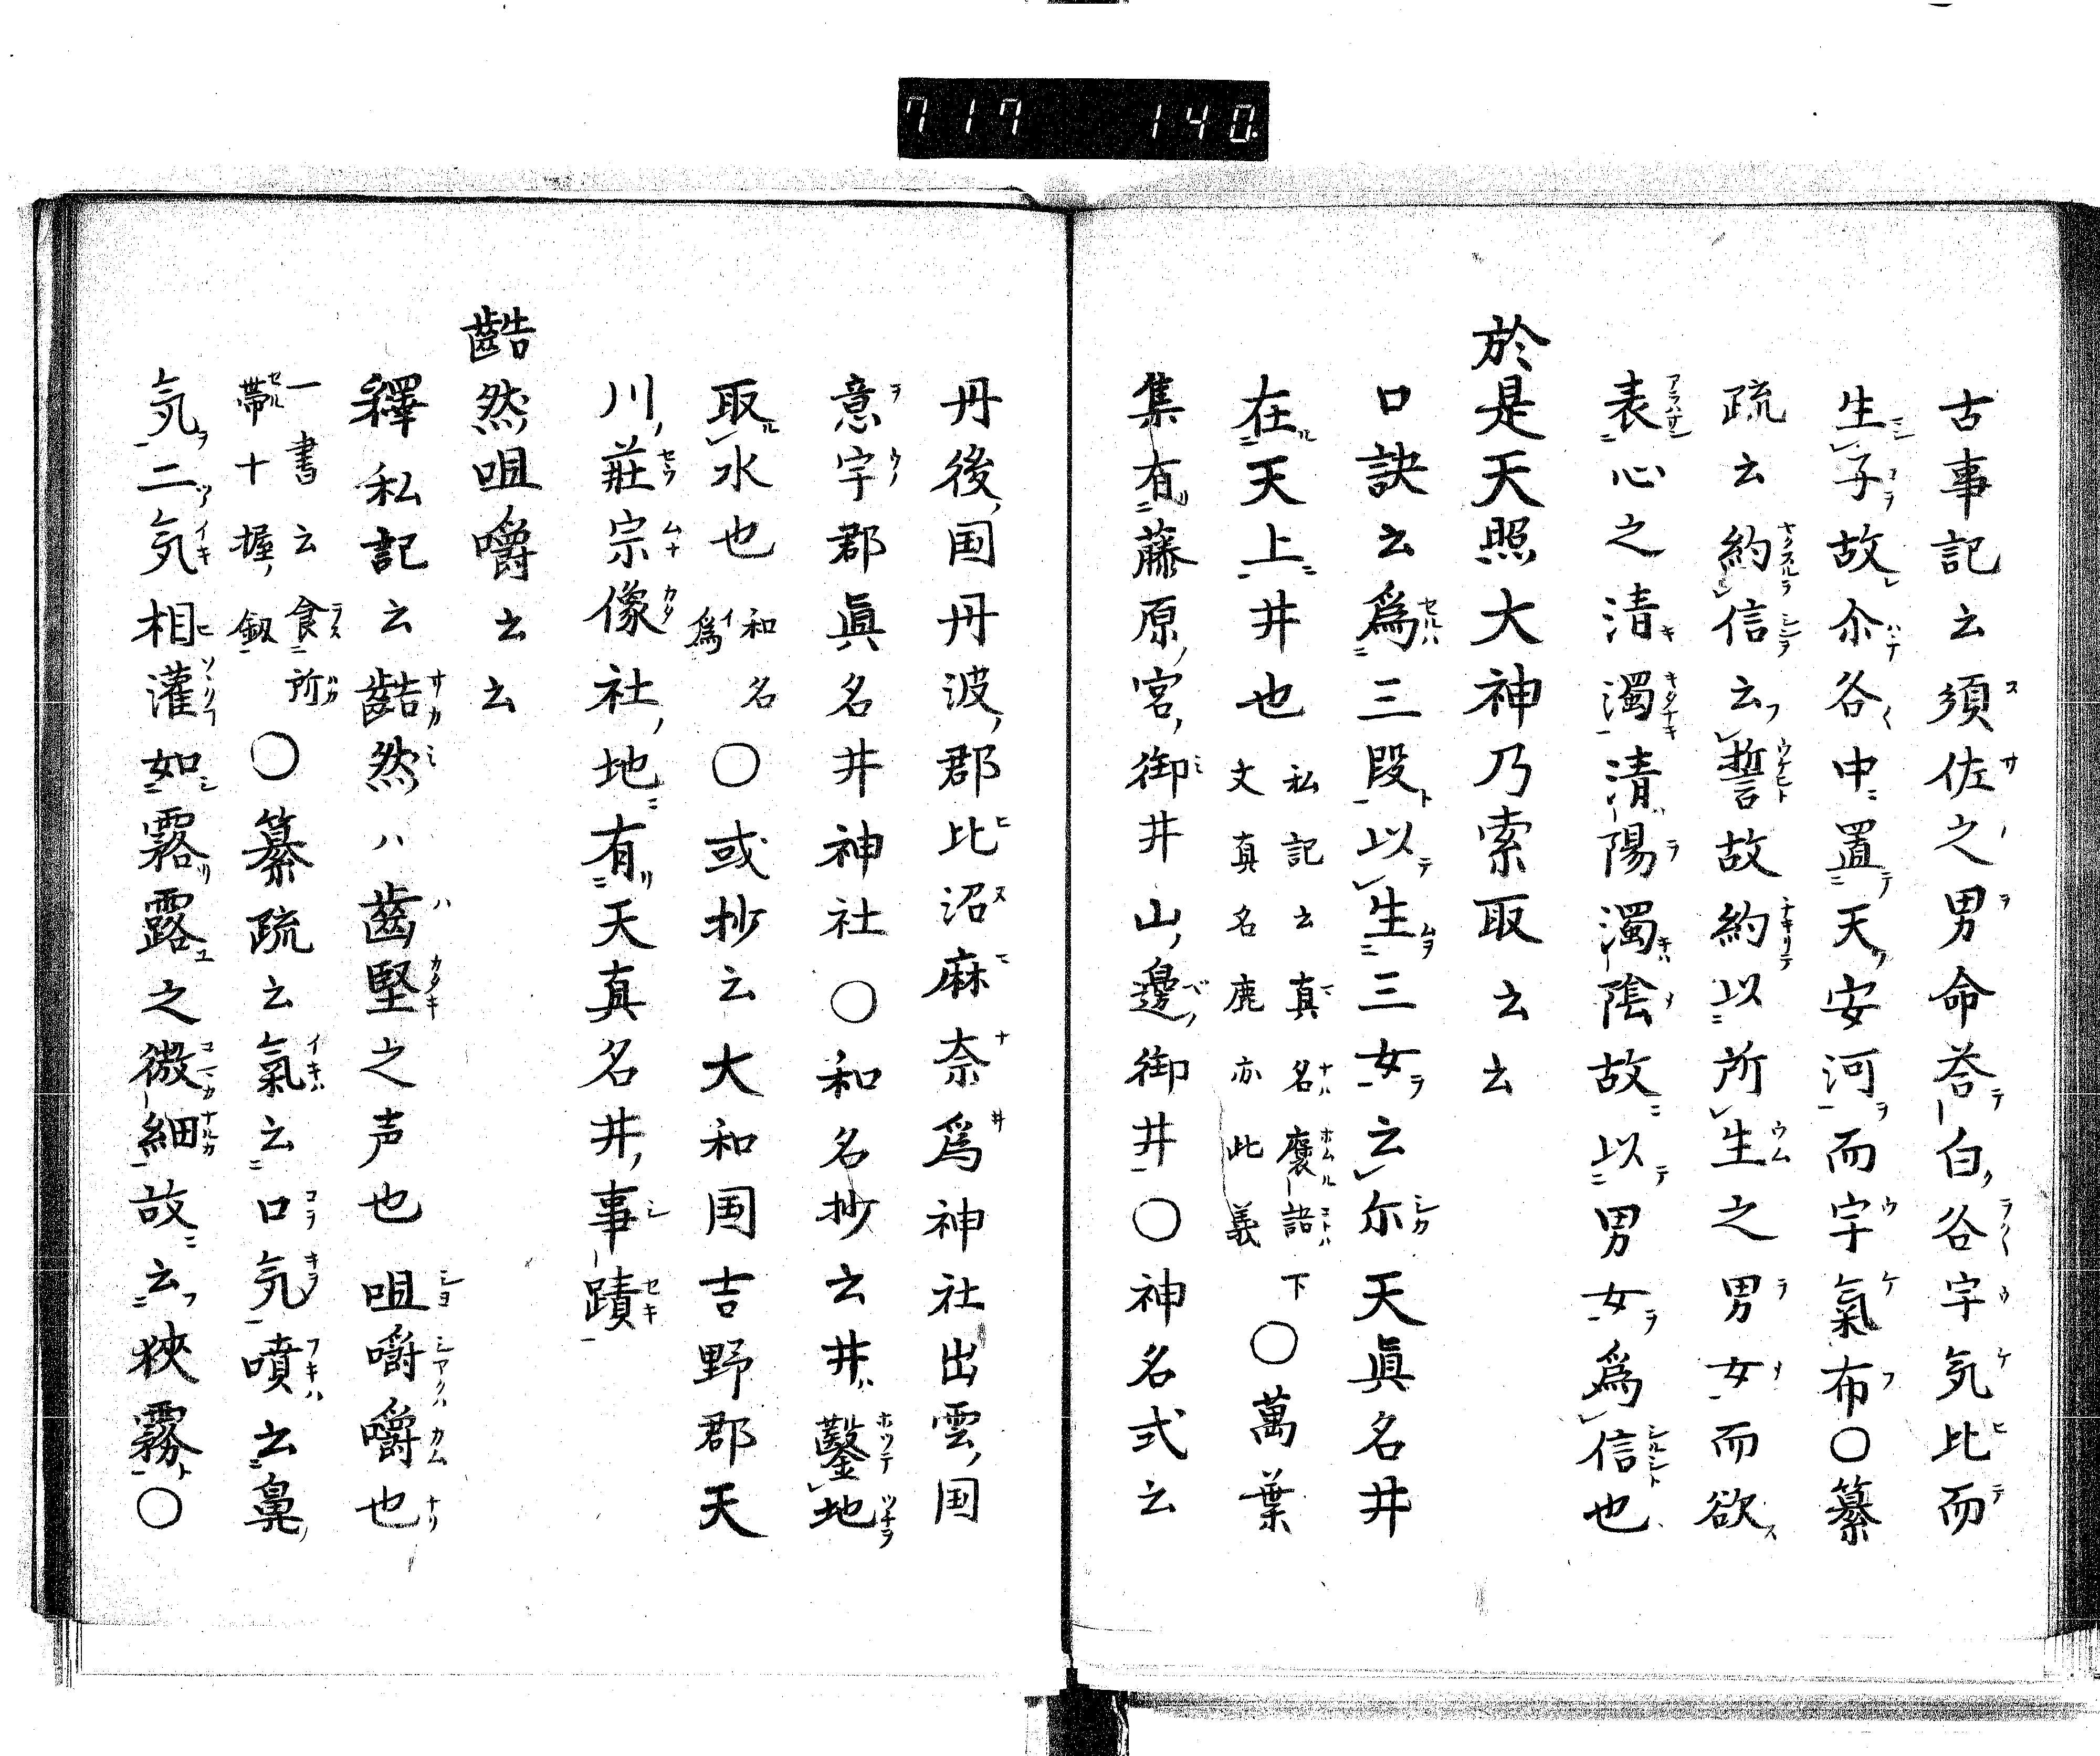 717 140
古事記云須佐之男命荅白谷宇気比而
生子故尒各中置天安河而宇氣布〇纂
疏云約信云誓故約以所生之男女而欲
表心之清濁清陽濁陰故以男女爲信也
於是天照大神乃索取云云
口訣云爲三段以生三女云尓天眞名井
在天上井也私記云真名褒語下文真名鹿亦此義〇萬葉
集有藤原宮御井山邊御井〇神名式云
丹後国丹波郡比沼麻奈爲神社出雲国
意宇郡眞名井神社〇和名抄云井鑿地
取水也和名爲〇或抄云大和国吉野郡天
川莊宗像社地有天真名井事蹟
齰然咀嚼云云
釋私記云齰然ハ齒堅之声也咀嚼嚼也
一書云食所帯十握釼〇纂疏云氣云口気噴云鼻
気二気相灌如霧露之微細故云狹霧〇